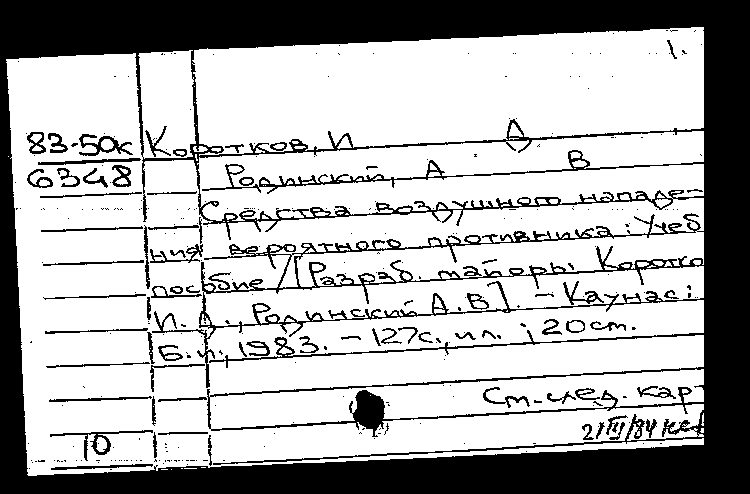 1.
83-50к Коротков, И Д
6348 Родинский, А В
Средства воздушного нападе-
ния вероятного противника: Учеб
пособие / [Разраб. майоры Коротко
И. Д., Родинский А. В]. - Каунас:
Б.и., 1983. - 127с., ил. ; 20см.
См. след. кар
10 21/III/84